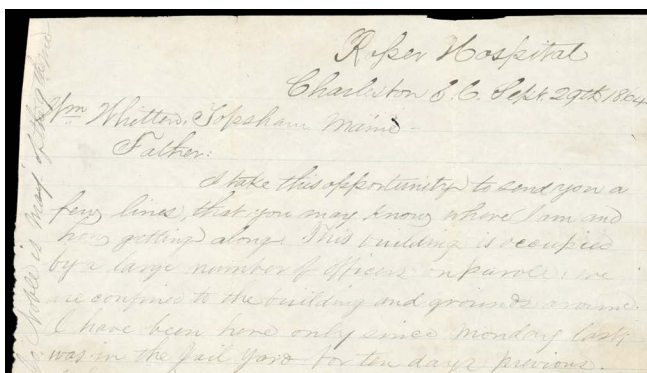 Roper Hospital
Charleston S.C. Sept. 29th 1864
Wm Whitten, Topsham Maine
Father:
I take this opportunity to send you a
few lines, that you may know where I am and
how getting along. This building is occupied
by a large number of officers on parole: we
are confined to the building and grounds around.
I have been here only since Monday last
was in the jail yard for ten days previous.
Noble is Maj. of the